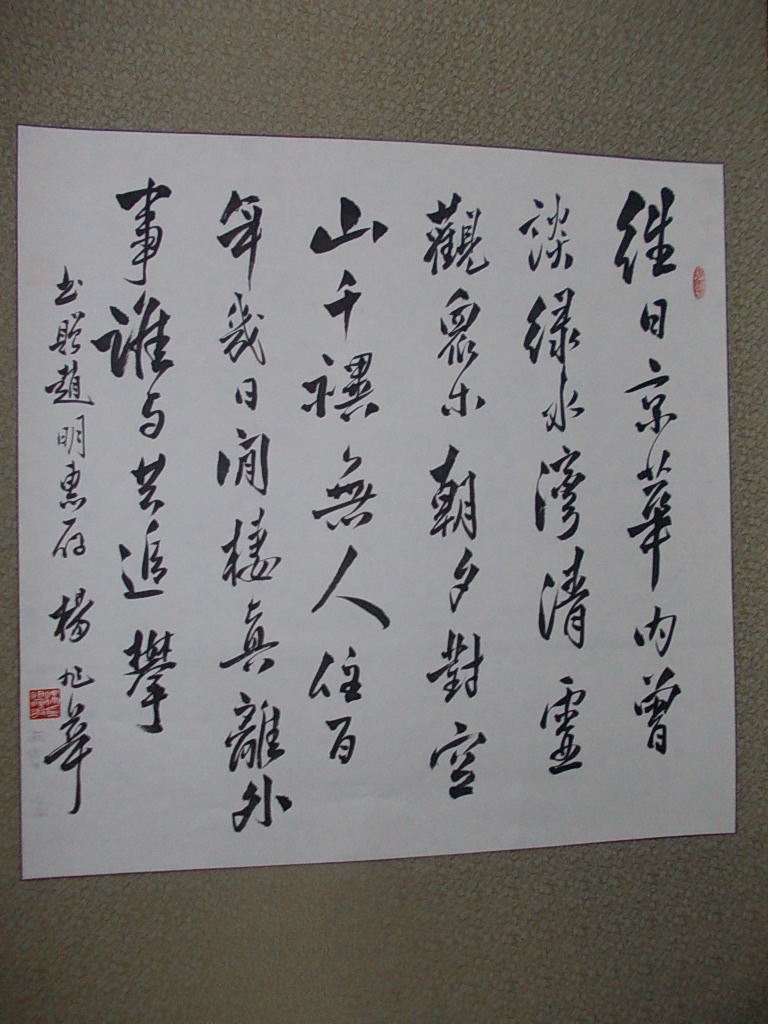 維日京華內曾
談綠水灣清靈
觀眾木朝夕對空
山千禩無人住百
年幾日閒棲真離外
事誰与共追攀
書贈趙明惠存 楊旭華